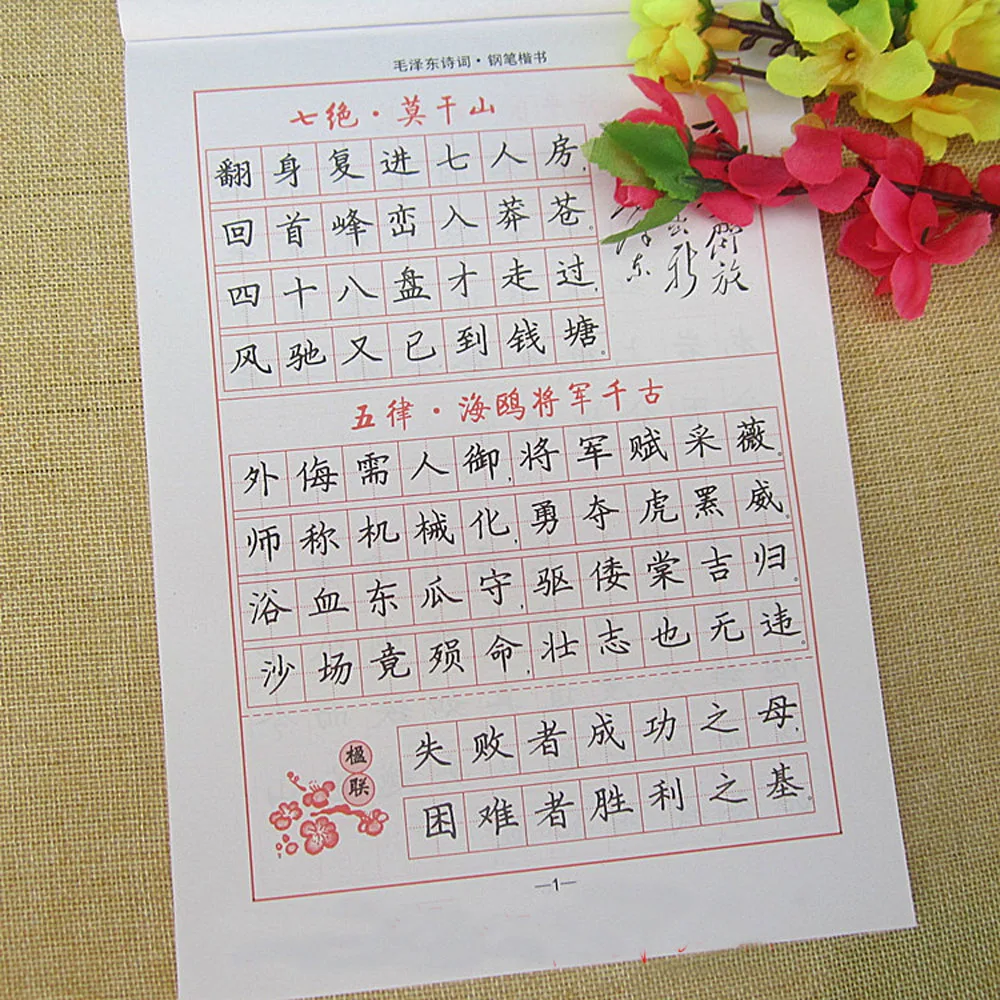 毛泽东诗词·钢笔楷书
七绝·莫干山
翻身复进七人房，
回首峰峦入莽苍。
四十八盘才走过，
风驰又已到钱塘。
五律·海鸥将军千古
外侮需人御，将军赋采薇。
师称机械化，勇夺虎罴威。
浴血东瓜守，驱倭棠吉归。
沙场竟殒命，壮志也无违。
楹联
失败者成功之母，
困难者胜利之基。
—1—